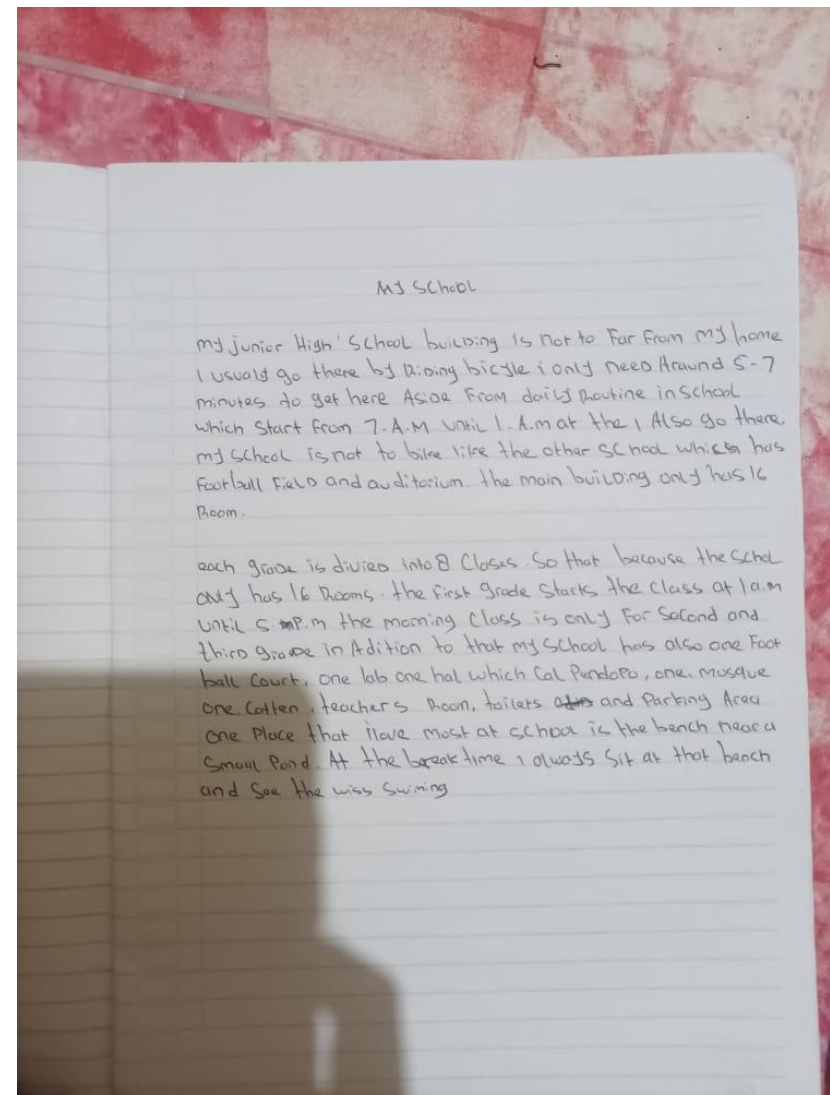 MY SCHOOL
my junior High School building is not to Far From my home
I usualy go there by Riding bicyle i only need Around 5-7
minutes to get here Aside From daily Routine in school
which Start from 7.A.M until 1.A.m at the I Also go there.
my school is not to bike like the other school which has
Football Field and auditorium. the main building only has 16
Room.
each grade is divied into 8 Closes. So that because the Schol
only has 16 Rooms. the first grade Starts the Class at 1 a.m
until 5 P.m the morning Class is only For Second and
third grade in Adition to that my School has also one Foot
ball Court, one lab one hal which Cal Pendopo, one mosque
one Catten, teachers Room, toilets and Parking Area
one Place that i love most at school is the bench near a
Smaal Pond. At the break time i always Sit at that bench
and See the wiss Swiming